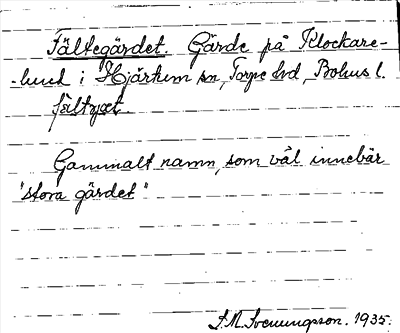 Fältegärdet. Gärde på Klockare-
-lund i Hjärtum sn, Torpe hd, Bohus l.
fältjæt.
Gammalt namn, som väl innebär
"stora gärdet"
S.M. Svenungsson. 1935.